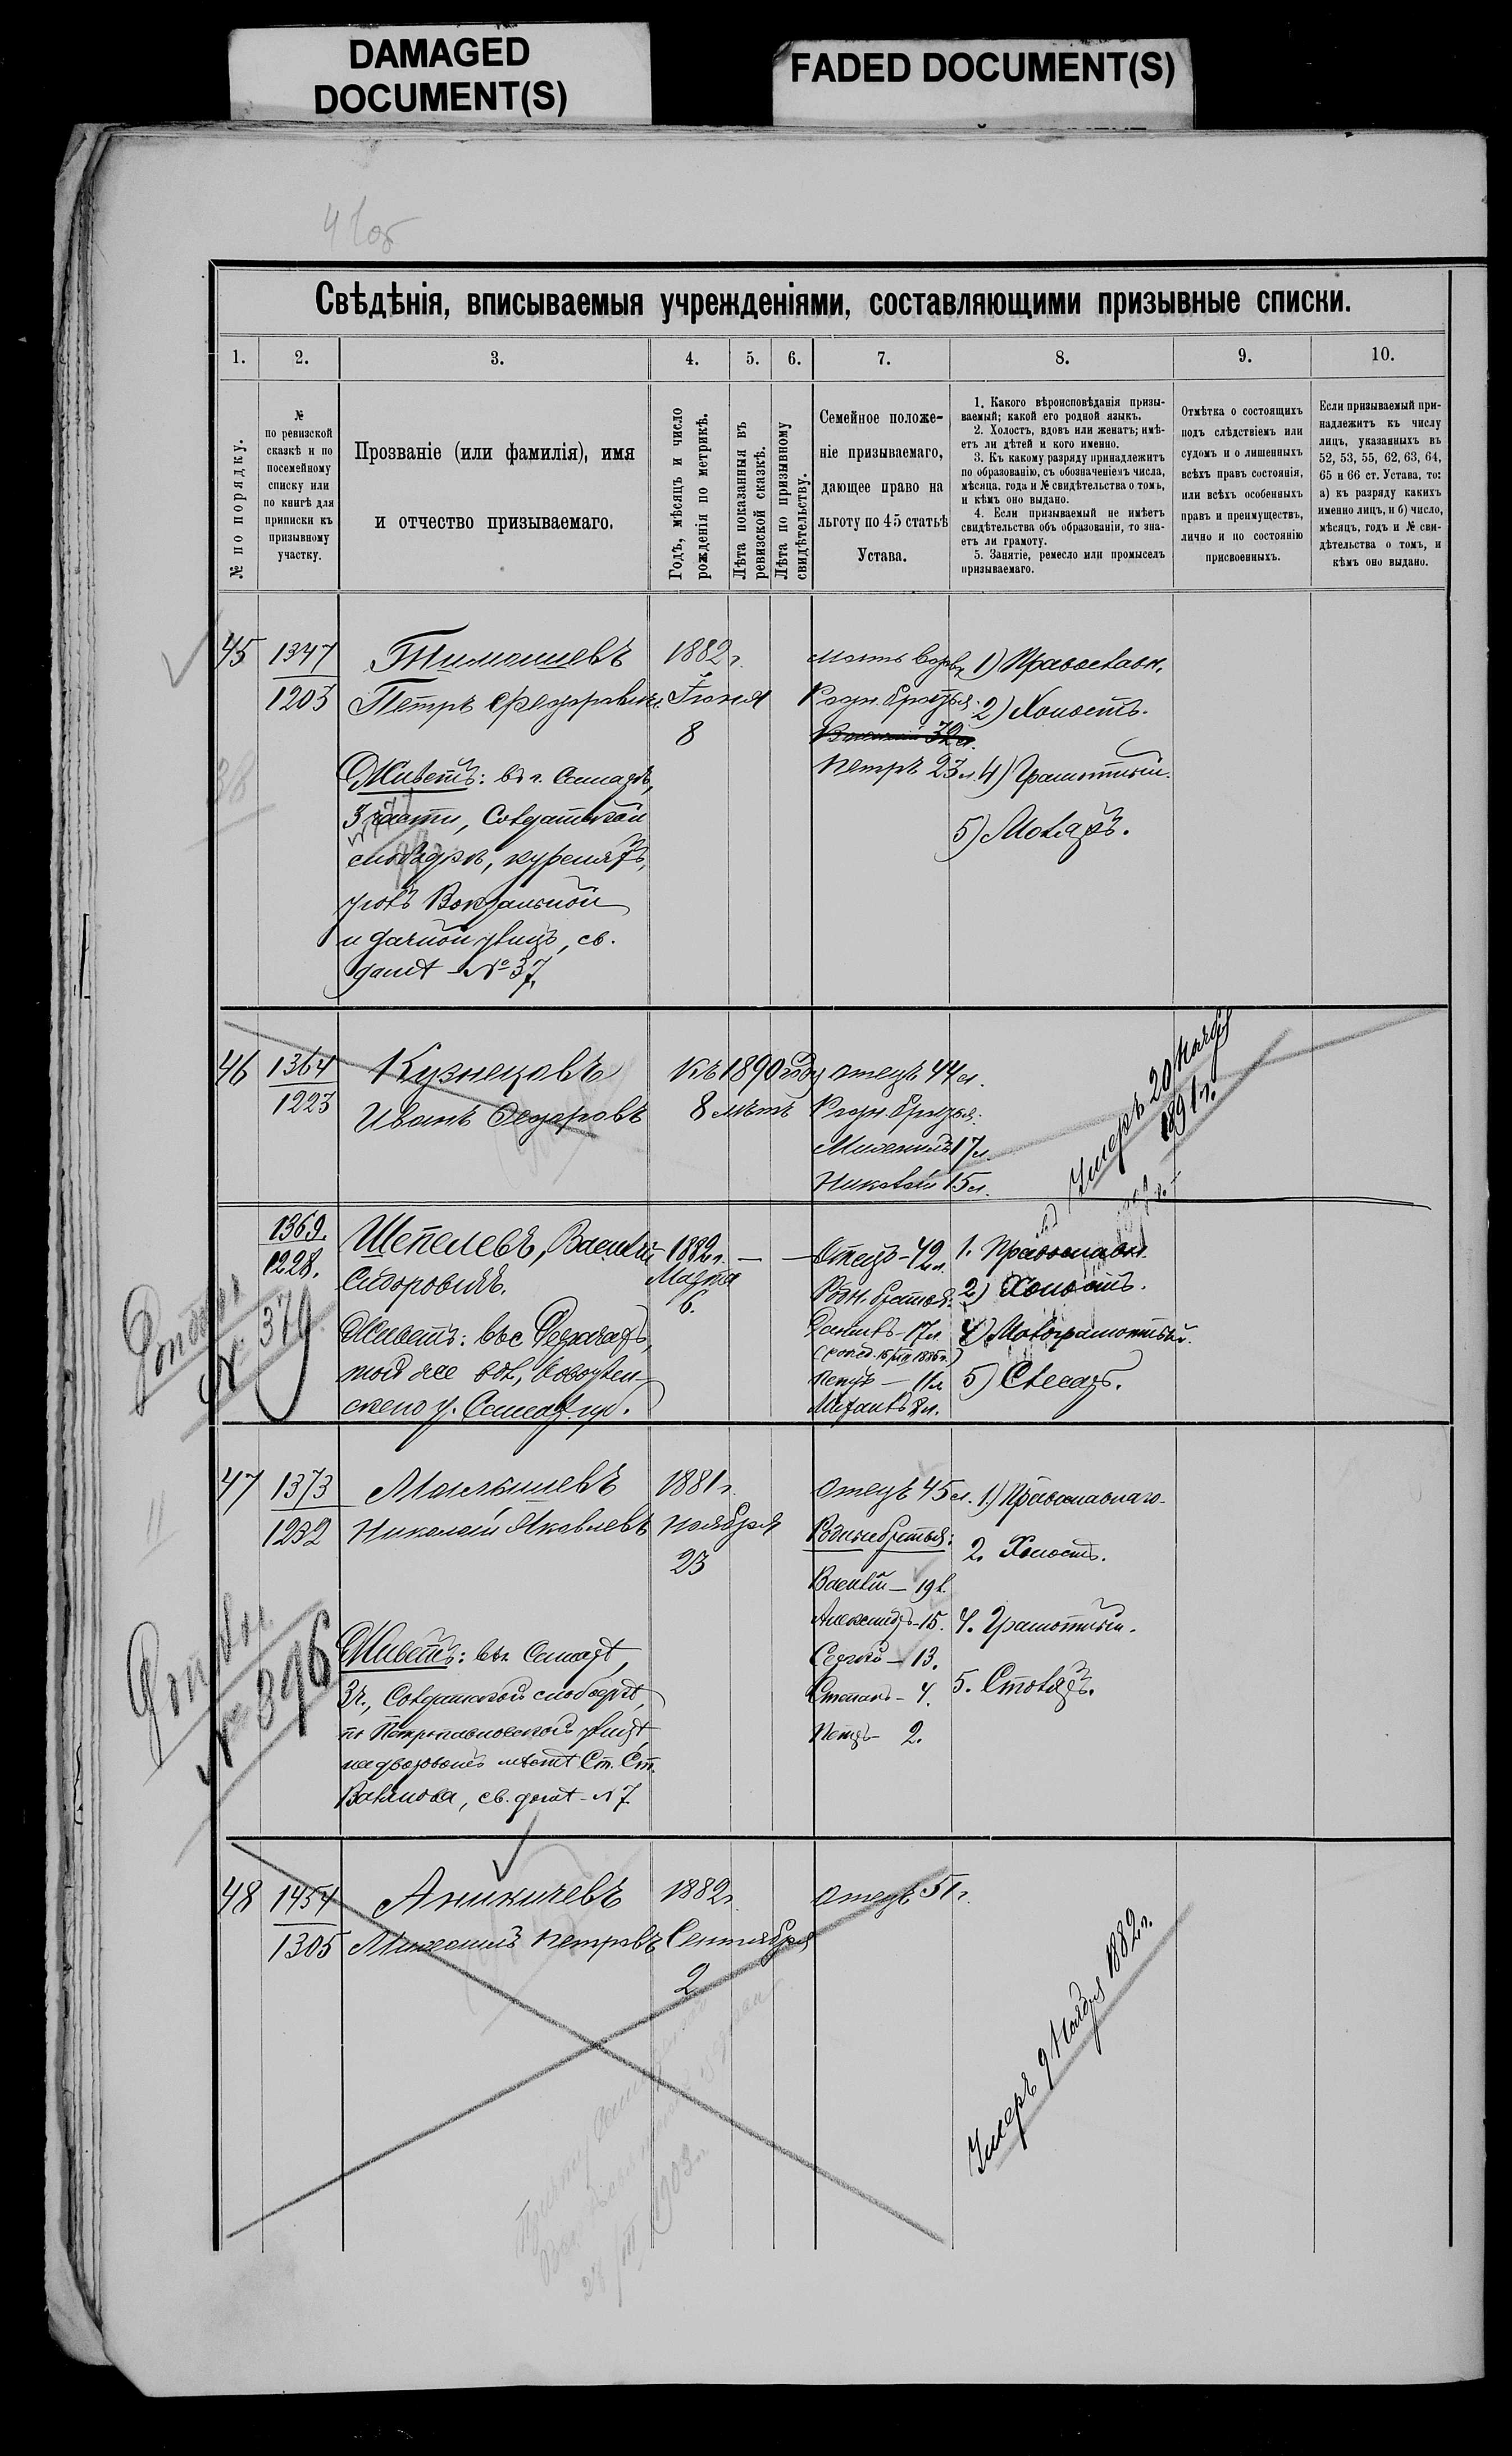 DAMAGED
DOCUMENT(S)
FADED DOCUMENT(S)
Свѣдѣнія, вписываемыя учрежденіями, составляющими призывные списки.
1.
2.
3.
4.
5.
6.
7.
8.
9.
10.
№ по порядку.
№
по ревизской
сказкѣ и по
посемейному
списку или
по книгѣ для
приписки къ
призывному
участку.
Прозваніе (или фамилія), имя
и отчество призываемаго.
Годъ, мѣсяцъ и число
рожденія по метрикѣ.
Лѣта показанныя въ
ревизской сказкѣ.
Лѣта по призывному
свидѣтельству.
Семейное положе-
ніе призываемаго,
дающее право на
льготу по 45 статьѣ
Устава.
1. Какого вѣроисповѣданія призы-
ваемый; какой его родной языкъ.
2. Холостъ, вдовъ или женатъ; имѣ-
етъ ли дѣтей и кого именно.
3. Къ какому разряду принадлежитъ
по образованію, съ обозначеніемъ числа,
мѣсяца, года и № свидѣтельства о томъ,
и кѣмъ оно выдано.
4. Если призываемый не имѣетъ
свидѣтельства объ образованіи, то зна-
етъ ли грамоту.
5. Занятіе, ремесло или промыселъ
призываемаго.
Отмѣтка о состоящихъ
подъ слѣдствіемъ или
судомъ и о лишенныхъ
всѣхъ правъ состоянія,
или всѣхъ особенныхъ
правъ и преимуществъ,
лично и по состоянію
присвоенныхъ.
Если призываемый при-
надлежитъ къ числу
лицъ, указанныхъ въ
52, 53, 55, 62, 63, 64,
65 и 66 ст. Устава, то:
а) къ разряду какихъ
именно лицъ, и б) число,
мѣсяцъ, годъ и № сви-
дѣтельства о томъ, и
кѣмъ оно выдано.
45
1347
1203
Тимошевъ
Петръ Федоровъ
1882 г.
Іюня
8
Живетъ: въ г. Самарѣ,
3 части, Солдатской
слободкѣ,
уголъ Вокзальной
и Дачной улицъ, св.
домѣ № 37.
Мать вдова
Родн. братья:
Петръ 23 л
1) Православн.
2) Холостъ.
4) Грамотный.
5) Моляръ.
46
1364
1223
Кузнецовъ
Иванъ Федоровъ
Къ 1890 году
8 лѣтъ
отецъ 44 л.
Родн. братья:
Михаилъ 17 л.
Николай 15 л.
Умеръ 20 Ноября
1891 г.
1369.
1228.
Шепелевъ, Василій
Сидоровичъ.
1882 г.
Марта
6.
Живетъ: въ с.
той же вол., Новоузен-
скаго у. Самар. губ.
Отецъ - 42 л.
Родн. братья:
17 л
Петръ — 11 л
8 л.
1. Православн.
2) Холостъ.
4) Малограмотный.
5) Слесарь.
№ 379
47
1373
1232
Николай Яковлевъ
1881 г.
Ноября
23
Живетъ: въ г. Самарѣ,
3 ч., Солдатской слободкѣ,
по Петропавловской улицѣ,
на дворовомъ мѣстѣ Ст. Ст.
св. домѣ - № 7.
отецъ 45 л.
Родные братья:
Василій — 19 л.
Александръ - 15.
Сергѣй — 13.
Степанъ - 4.
Петръ - 2.
1.) Православнаго.
2. Холостъ.
4. Грамотный.
5. Столяръ.
№ 396
48
1454
1305
Аникичевъ
Михаилъ Петровъ
1882 г.
Сентября
2
отецъ 51 г.
Умеръ 9 Ноября 1882 г.